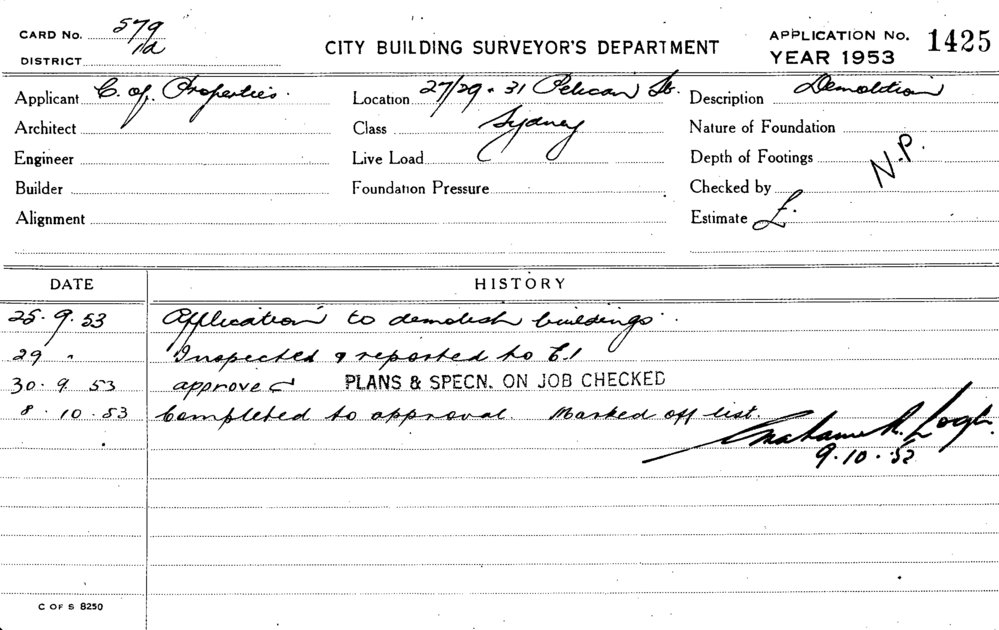 CARD No. 579
1a
DISTRICT
CITY BUILDING SURVEYOR'S DEPARTMENT
APPLICATION No. 1425
YEAR 1953
Applicant C. of Properties.
Location 27/29 - 31 Pelican St.
Description Demolition
Architect
Class Sydney
Nature of Foundation
Engineer
Live Load
Depth of Footings
N.P.
Builder
Foundation Pressure
Checked by
Alignment
Estimate £.
DATE HISTORY
25.9.53 Application to demolish buildings.
29 " Inspected & reported to E.1
30.9.53 approved PLANS & SPECN. ON JOB CHECKED
8.10.53 Completed to approval. Marked off list.
9.10.53
C OF S 8250